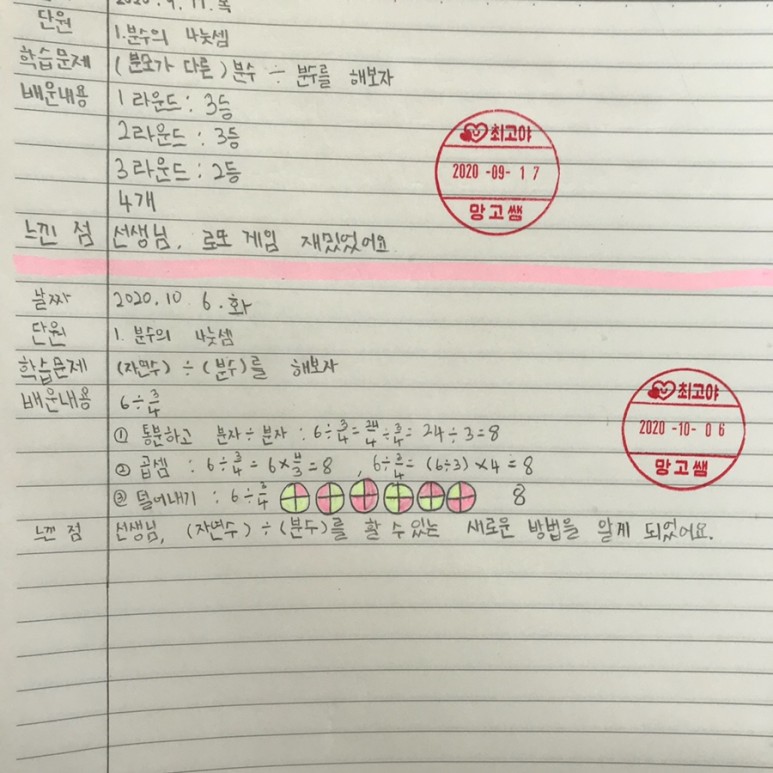 단원 1. 분수의 나눗셈
학습문제 (분모가 다른) 분수 ÷ 분수를 해보자
배운내용 1 라운드 : 3등
2 라운드 : 3등
3 라운드 : 2등
4개
느낀 점 선생님, 로또 게임 재밌었어요
최고야
2020 -09- 1 7
망고쌤
날짜 2020. 10 6. 화
단원 1. 분수의 나눗셈
학습문제 (자연수) ÷ (분수)를 해보자
배운내용 6 ÷ 3/4
① 통분하고 분자÷분자 : 6 ÷ 3/4 = 24/4 ÷ 3/4 = 24 ÷ 3 = 8
② 곱셈 : 6 ÷ 3/4 = 6 × 4/3 = 8 , 6 ÷ 3/4 = (6÷3) × 4 = 8
③ 덜어내기 : 6 ÷ 3/4 8
느낀 점 선생님, (자연수) ÷ (분수)를 할 수 있는 새로운 방법을 알게 되었어요.
최고야
2020 -10- 0 6
망고쌤